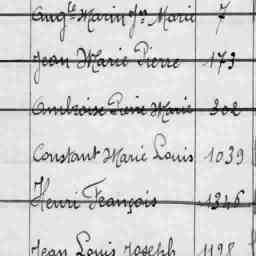 Aug.te Marin J.h Marie 7
Jean Marie Pierre 173
Ambroise Pierre Marie 302
Constant Marie Louis 1039
Henri François 1346
Jean Louis Joseph 1198